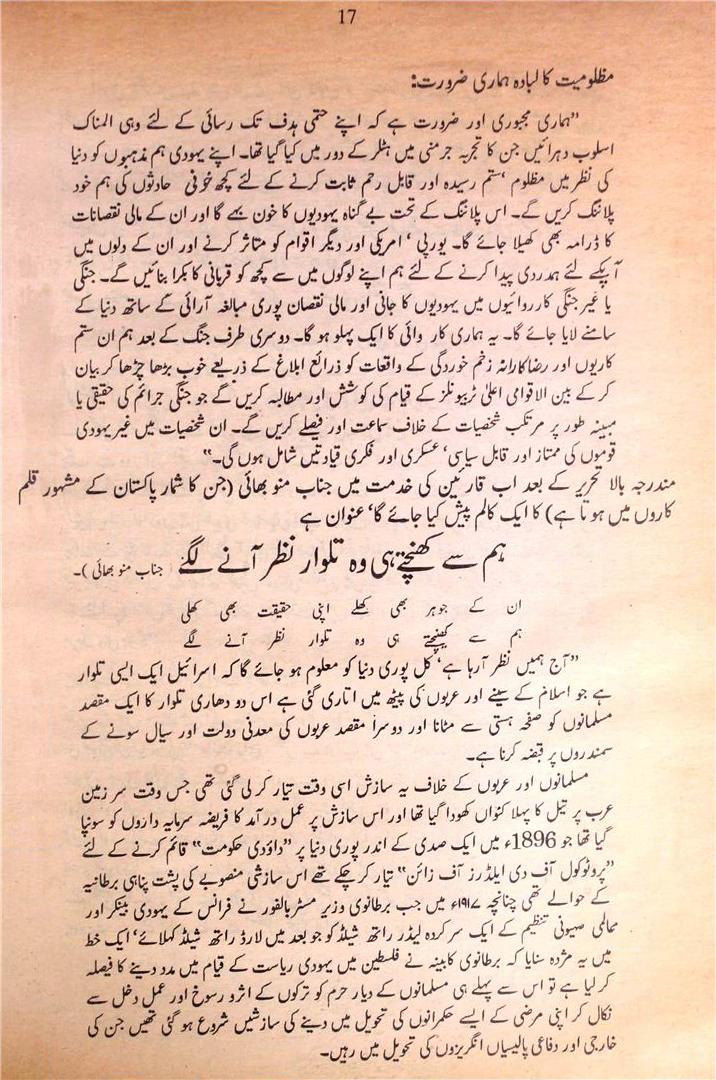 17
مظلومیت کا لبادہ ہماری ضرورت:
”ہماری مجبوری اور ضرورت ہے کہ اپنے حتمی ہدف تک رسائی کے لئے وہی المناک
اسلوب دہرائیں جن کا تجربہ جرمنی میں ہٹلر کے دور میں کیا گیا تھا۔ اپنے یہودی ہم مذہبوں کو دنیا
کی نظر میں مظلوم ‘ستم رسیدہ اور قابل رحم ثابت کرنے کے لئے کچھ خونی حادثوں کی ہم خود
پلاننگ کریں گے۔ اس پلاننگ کے تحت بے گناہ یہودیوں کا خون بہے گا اور ان کے مالی نقصانات
کا ڈرامہ بھی کھیلا جائے گا۔ یورپی ‘ امریکی اور دیگر اقوام کو متاثر کرنے اور ان کے دلوں میں
آپکے لئے ہمدردی پیدا کرنے کے لئے ہم اپنے لوگوں میں سے کچھ کو قربانی کا بکرا بنائیں گے۔ جنگی
یا غیر جنگی کارروائیوں میں یہودیوں کا جانی اور مالی نقصان پوری مبالغہ آرائی کے ساتھ دنیا کے
سامنے لایا جائے گا۔ یہ ہماری کار وائی کا ایک پہلو ہو گا۔ دوسری طرف جنگ کے بعد ہم ان ستم
کاریوں اور رضاکارانہ زخم خوردگی کے واقعات کو ذرائع ابلاغ کے ذریعے خوب بڑھا چڑھا کر بیان
کر کے بین الاقوامی اعلیٰ ٹریبونلز کے قیام کی کوشش اور مطالبہ کریں گے جو جنگی جرائم کی حقیقی یا
مبینہ طور پر مرتکب شخصیات کے خلاف سماعت اور فیصلے کریں گے۔ ان شخصیات میں غیر یہودی
قوموں کی ممتاز اور قابل سیاسی‘ عسکری اور فکری قیادتیں شامل ہوں گی۔“
مندرجہ بالا تحریر کے بعد اب قارئین کی خدمت میں جناب منو بھائی (جن کا شمار پاکستان کے مشہور قلم
کاروں میں ہو تا ہے) کا ایک کالم پیش کیا جائے گا‘ عنوان ہے
ہم سے کھنچتے ہی وہ تلوار نظر آنے لگے ( جناب منو بھائی )۔
ان کے جوہر بھی کھلے اپنی حقیقت بھی کھلی
ہم سے کھنچتے ہی وہ تلوار نظر آنے لگے
”آج ہمیں نظر آرہا ہے‘ کل پوری دنیا کو معلوم ہو جائے گا کہ اسرائیل ایک ایسی تلوار
ہے جو اسلام کے سینے اور عربوں کی پیٹھ میں اتاری گئی ہے اس دو دھاری تلوار کا ایک مقصد
مسلمانوں کو صفحہ ہستی سے مٹانا اور دوسرا مقصد عربوں کی معدنی دولت اور سیال سونے کے
سمندروں پر قبضہ کرنا ہے۔
مسلمانوں اور عربوں کے خلاف یہ سازش اسی وقت تیار کر لی گئی تھی جس وقت سر زمین
عرب پر تیل کا پہلا کنواں کھودا گیا تھا اور اس سازش پر عمل در آمد کا فریضہ سرمایہ داروں کو سونپا
گیا تھا جو 1896ء میں ایک صدی کے اندر پوری دنیا پر ”داؤدی حکومت“ قائم کرنے کے لئے
”پروٹوکول آف دی ایلڈرز آف زائن“ تیار کر چکے تھے اس سازشی منصوبے کی پشت پناہی برطانیہ
کے حوالے تھی چنانچہ ۱۹۱۷ء میں جب برطانوی وزیر مسٹر بالفور نے فرانس کے یہودی بینکر اور
عالمی صیہونی تنظیم کے ایک سر کردہ لیڈر راتھ شیلڈ کو جو بعد میں لارڈ راتھ شیلڈ کہلائے‘ ایک خط
میں یہ مژدہ سنایا کہ برطانوی کابینہ نے فلسطین میں یہودی ریاست کے قیام میں مدد دینے کا فیصلہ
کر لیا ہے تو اس سے پہلے ہی مسلمانوں کے دیار حرم کو ترکوں کے اثر و رسوخ اور عمل دخل سے
نکال کر اپنی مرضی کے ایسے حکمرانوں کی تحویل میں دینے کی سازشیں شروع ہو گئی تھیں جن کی
خارجی اور دفاعی پالیسیاں انگریزوں کی تحویل میں رہیں۔